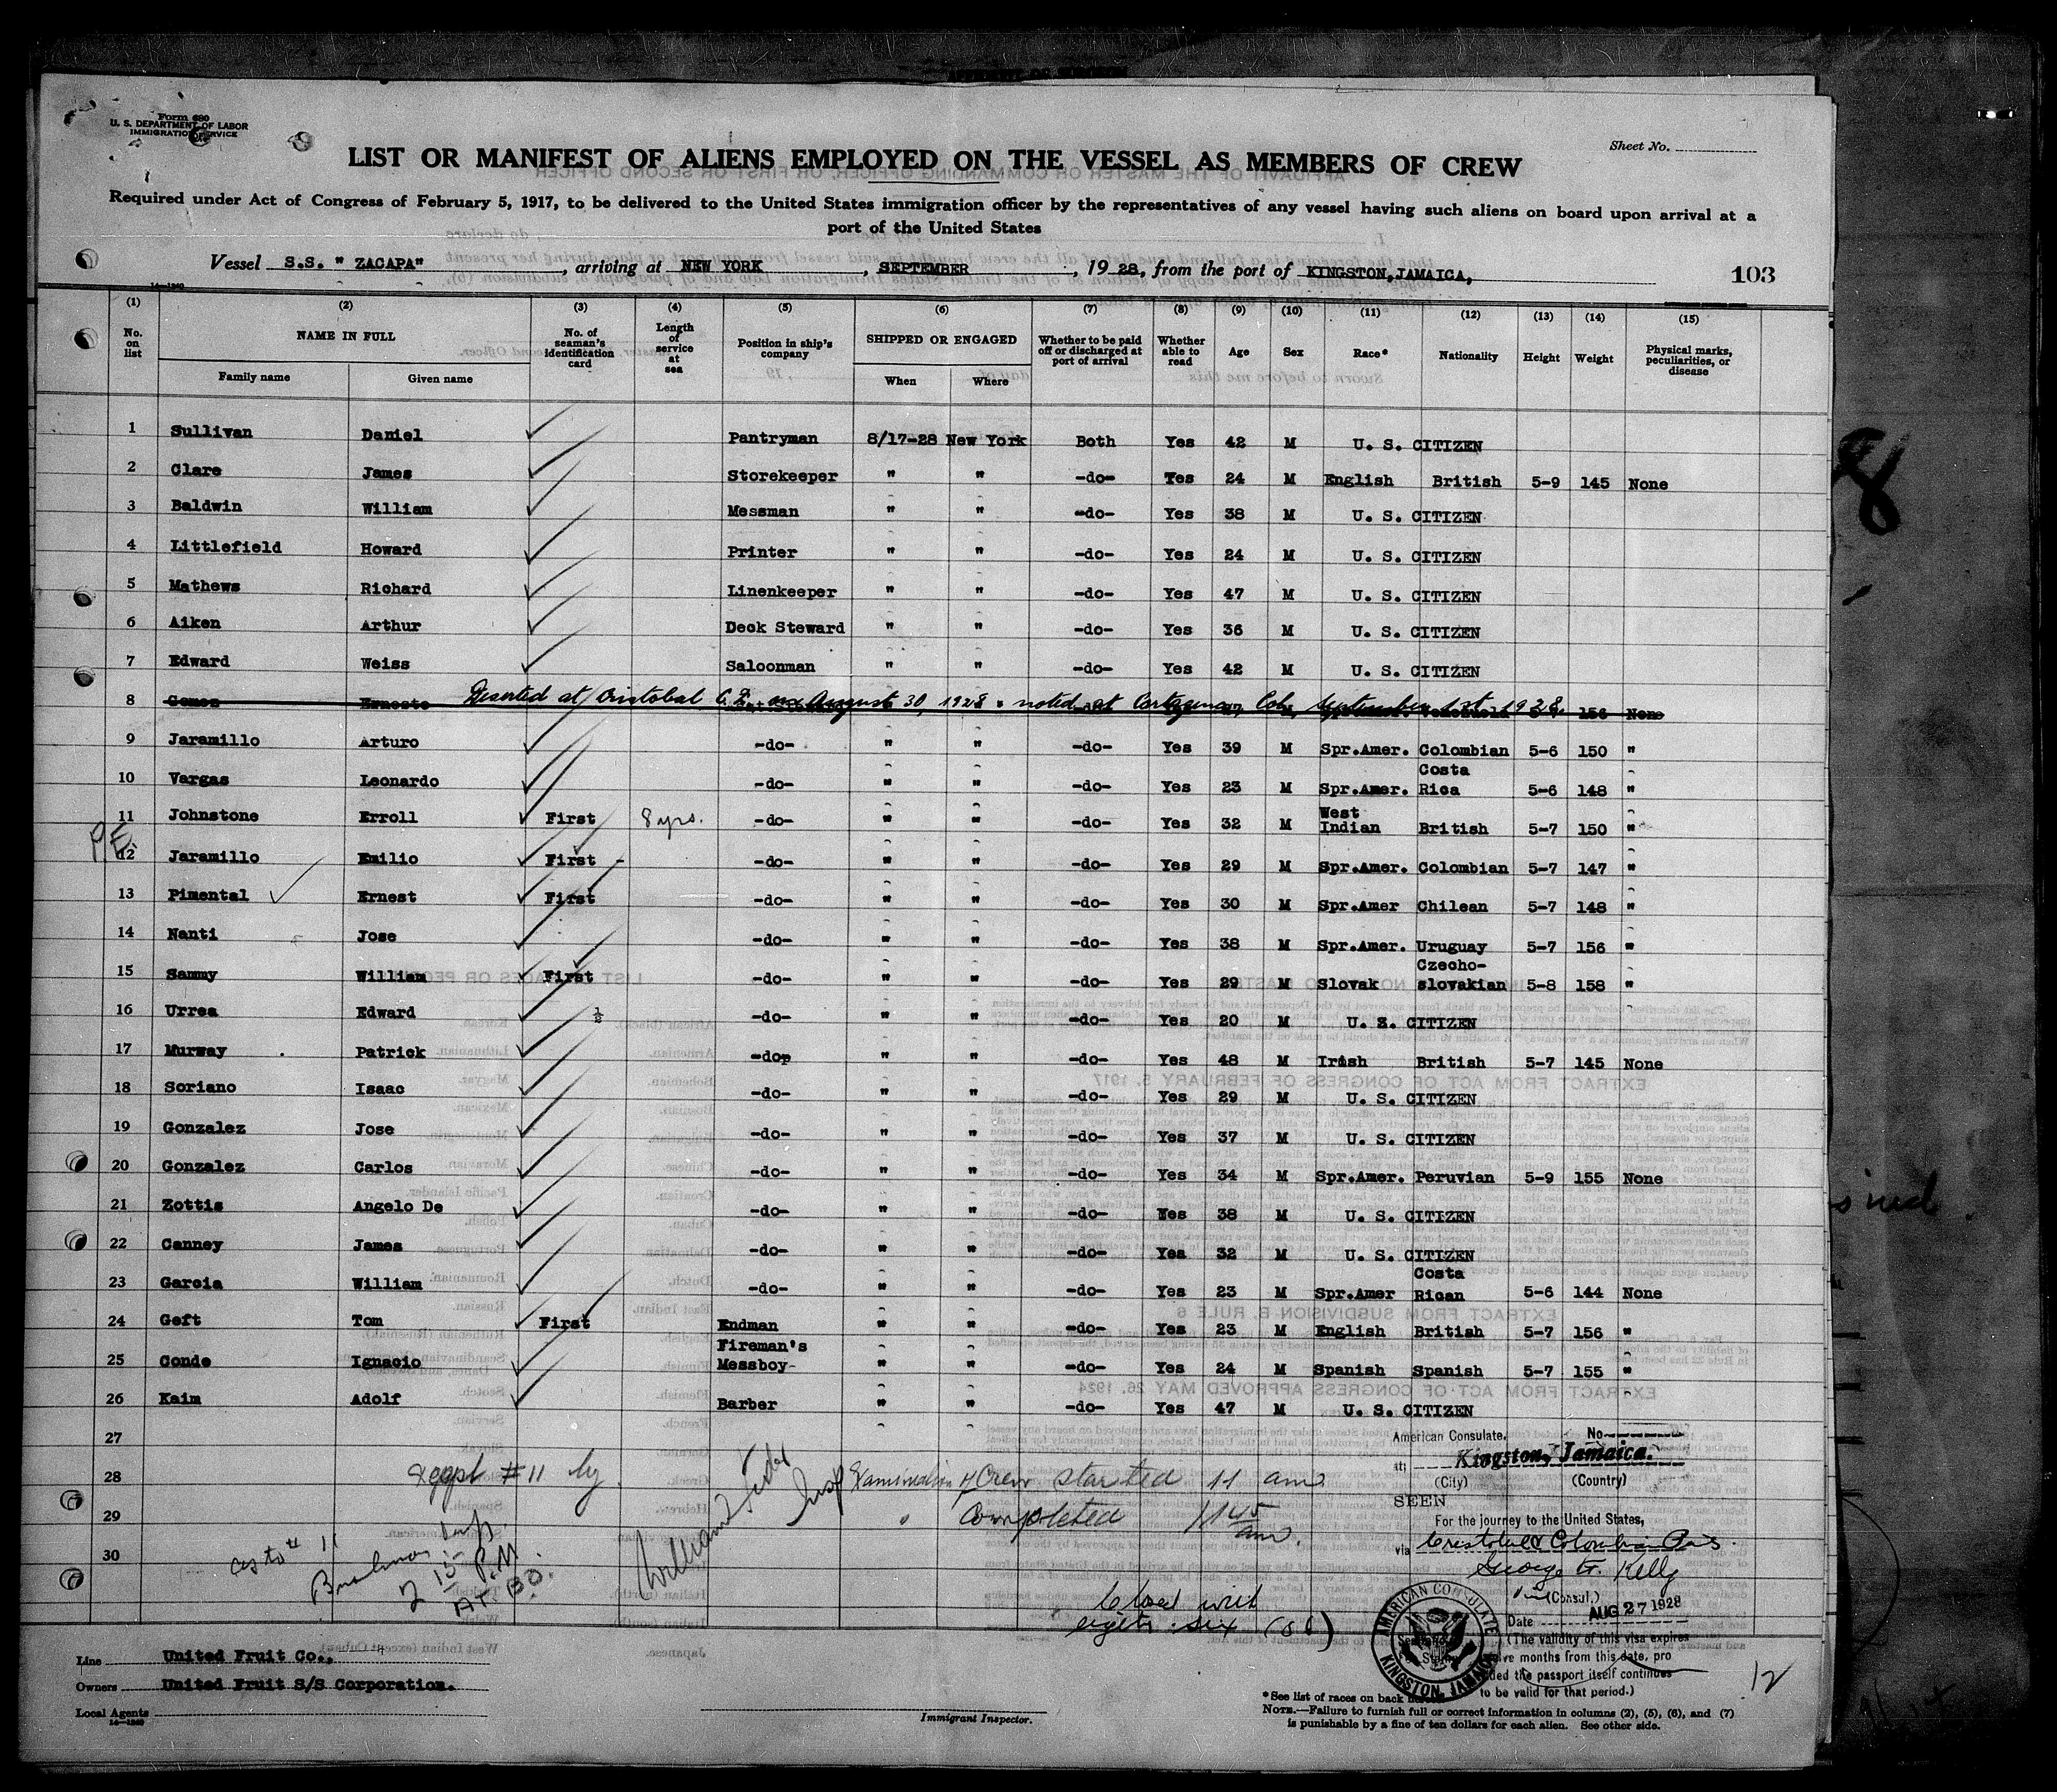 Form 680
U. S. DEPARTMENT OF LABOR
IMMIGRATION SERVICE
Sheet No.
LIST OR MANIFEST OF ALIENS EMPLOYED ON THE VESSEL AS MEMBERS OF CREW
Required under Act of Congress of February 5, 1917, to be delivered to the United States immigration officer by the representatives of any vessel having such aliens on board upon arrival at a
port of the United States
Vessel S.S. " ZACAPA" , arriving at NEW YORK , SEPTEMBER , 19 28, from the port of KINGSTON, JAMAICA,
103
(1) (2) (3) (4) (5) (6) (7) (8) (9) (10) (11) (12) (13) (14) (15)
No. on list NAME IN FULL Family name Given name No. of seaman's identification card Length of service at sea Position in ship's company SHIPPED OR ENGAGED When Where Whether to be paid off or discharged at port of arrival Whether able to read Age Sex Race* Nationality Height Weight Physical marks, peculiarities, or disease
1 Sullivan Daniel Pantryman 8/17-28 New York Both Yes 42 M U. S. CITIZEN
2 Clare James Storekeeper " " -do- Yes 24 M English British 5-9 145 None
3 Baldwin William Messman " " -do- Yes 38 M U. S. CITIZEN
4 Littlefield Howard Printer " " -do- Yes 24 M U. S. CITIZEN
5 Mathews Richard Linenkeeper " " -do- Yes 47 M U. S. CITIZEN
6 Aiken Arthur Deck Steward " " -do- Yes 36 M U. S. CITIZEN
7 Edward Weiss Saloonman " " -do- Yes 42 M U. S. CITIZEN
8 Ernesto Deserted at Cristobal C.Z. on August 30, 1928 & noted at Cartagena, Col. September 1st 1928. 156 None
9 Jaramillo Arturo -do- " " -do- Yes 39 M Spr.Amer. Colombian 5-6 150 "
10 Vargas Leonardo -do- " " -do- Yes 23 M Spr.Amer. Costa Rica 5-6 148 "
11 Johnstone Erroll First 8 yrs. -do- " " -do- Yes 32 M West Indian British 5-7 150 "
P.E.
12 Jaramillo Emilio First - -do- " " -do- Yes 29 M Spr.Amer. Colombian 5-7 147 "
13 Pimental Ernest First -do- " " -do- Yes 30 M Spr.Amer Chilean 5-7 148 "
14 Nanti Jose -do- " " -do- Yes 38 M Spr.Amer. Uruguay 5-7 156 "
15 Sammy William First -do- " " -do- Yes 29 M Slovak Czecho-slovakian 5-8 158 "
16 Urrea Edward ½ -do- " " -do- Yes 20 M U. S. CITIZEN
17 Murway Patrick -dop " " -do- Yes 48 M Irish British 5-7 145 None
18 Soriano Isaac -do- " " -do- Yes 29 M U. S. CITIZEN
19 Gonzalez Jose -do- " " -do- Yes 37 M U. S. CITIZEN
20 Gonzalez Carlos -do- " " -do- Yes 34 M Spr.Amer. Peruvian 5-9 155 None
21 Zottis Angelo De -do- " " -do- Yes 38 M U. S. CITIZEN
22 Canney James -do- " " -do- Yes 32 M U. S. CITIZEN
23 Garcia William -do- " " -do- Yes 23 M Spr.Amer Costa Rican 5-6 144 None
24 Geft Tom First Endman " " -do- Yes 23 M English British 5-7 156 "
25 Conde Ignacio Fireman's Messboy- " " -do- Yes 24 M Spanish Spanish 5-7 155 "
26 Kaim Adolf Barber " " -do- Yes 47 M U. S. CITIZEN
27
28
29
30
#11 by
as to # 11
2 15 P.M
AT. BO.
William
Insp
Examination of Crew started 11 am
" Completed 11 45 am.
Closed with
eighty-six (86)
American Consulate, No
at Kingston, Jamaica.
(City) (Country)
SEEN
For the journey to the United States,
via Cristobal & Colombian Pts.
George G. Kelly
(Consul.)
Date AUG 27 1928
(The validity of this visa expires
twelve months from this date, pro
vided the passport itself continues
to be valid for that period.)
AMERICAN CONSULATE
KINGSTON, JAMAICA
12
Line United Fruit Co.,
Owners United Fruit S/S Corporation.
Local Agents
Immigrant Inspector.
*See list of races on back hereof.
NOTE.—Failure to furnish full or correct information in columns (2), (5), (6), and (7)
is punishable by a fine of ten dollars for each alien. See other side.